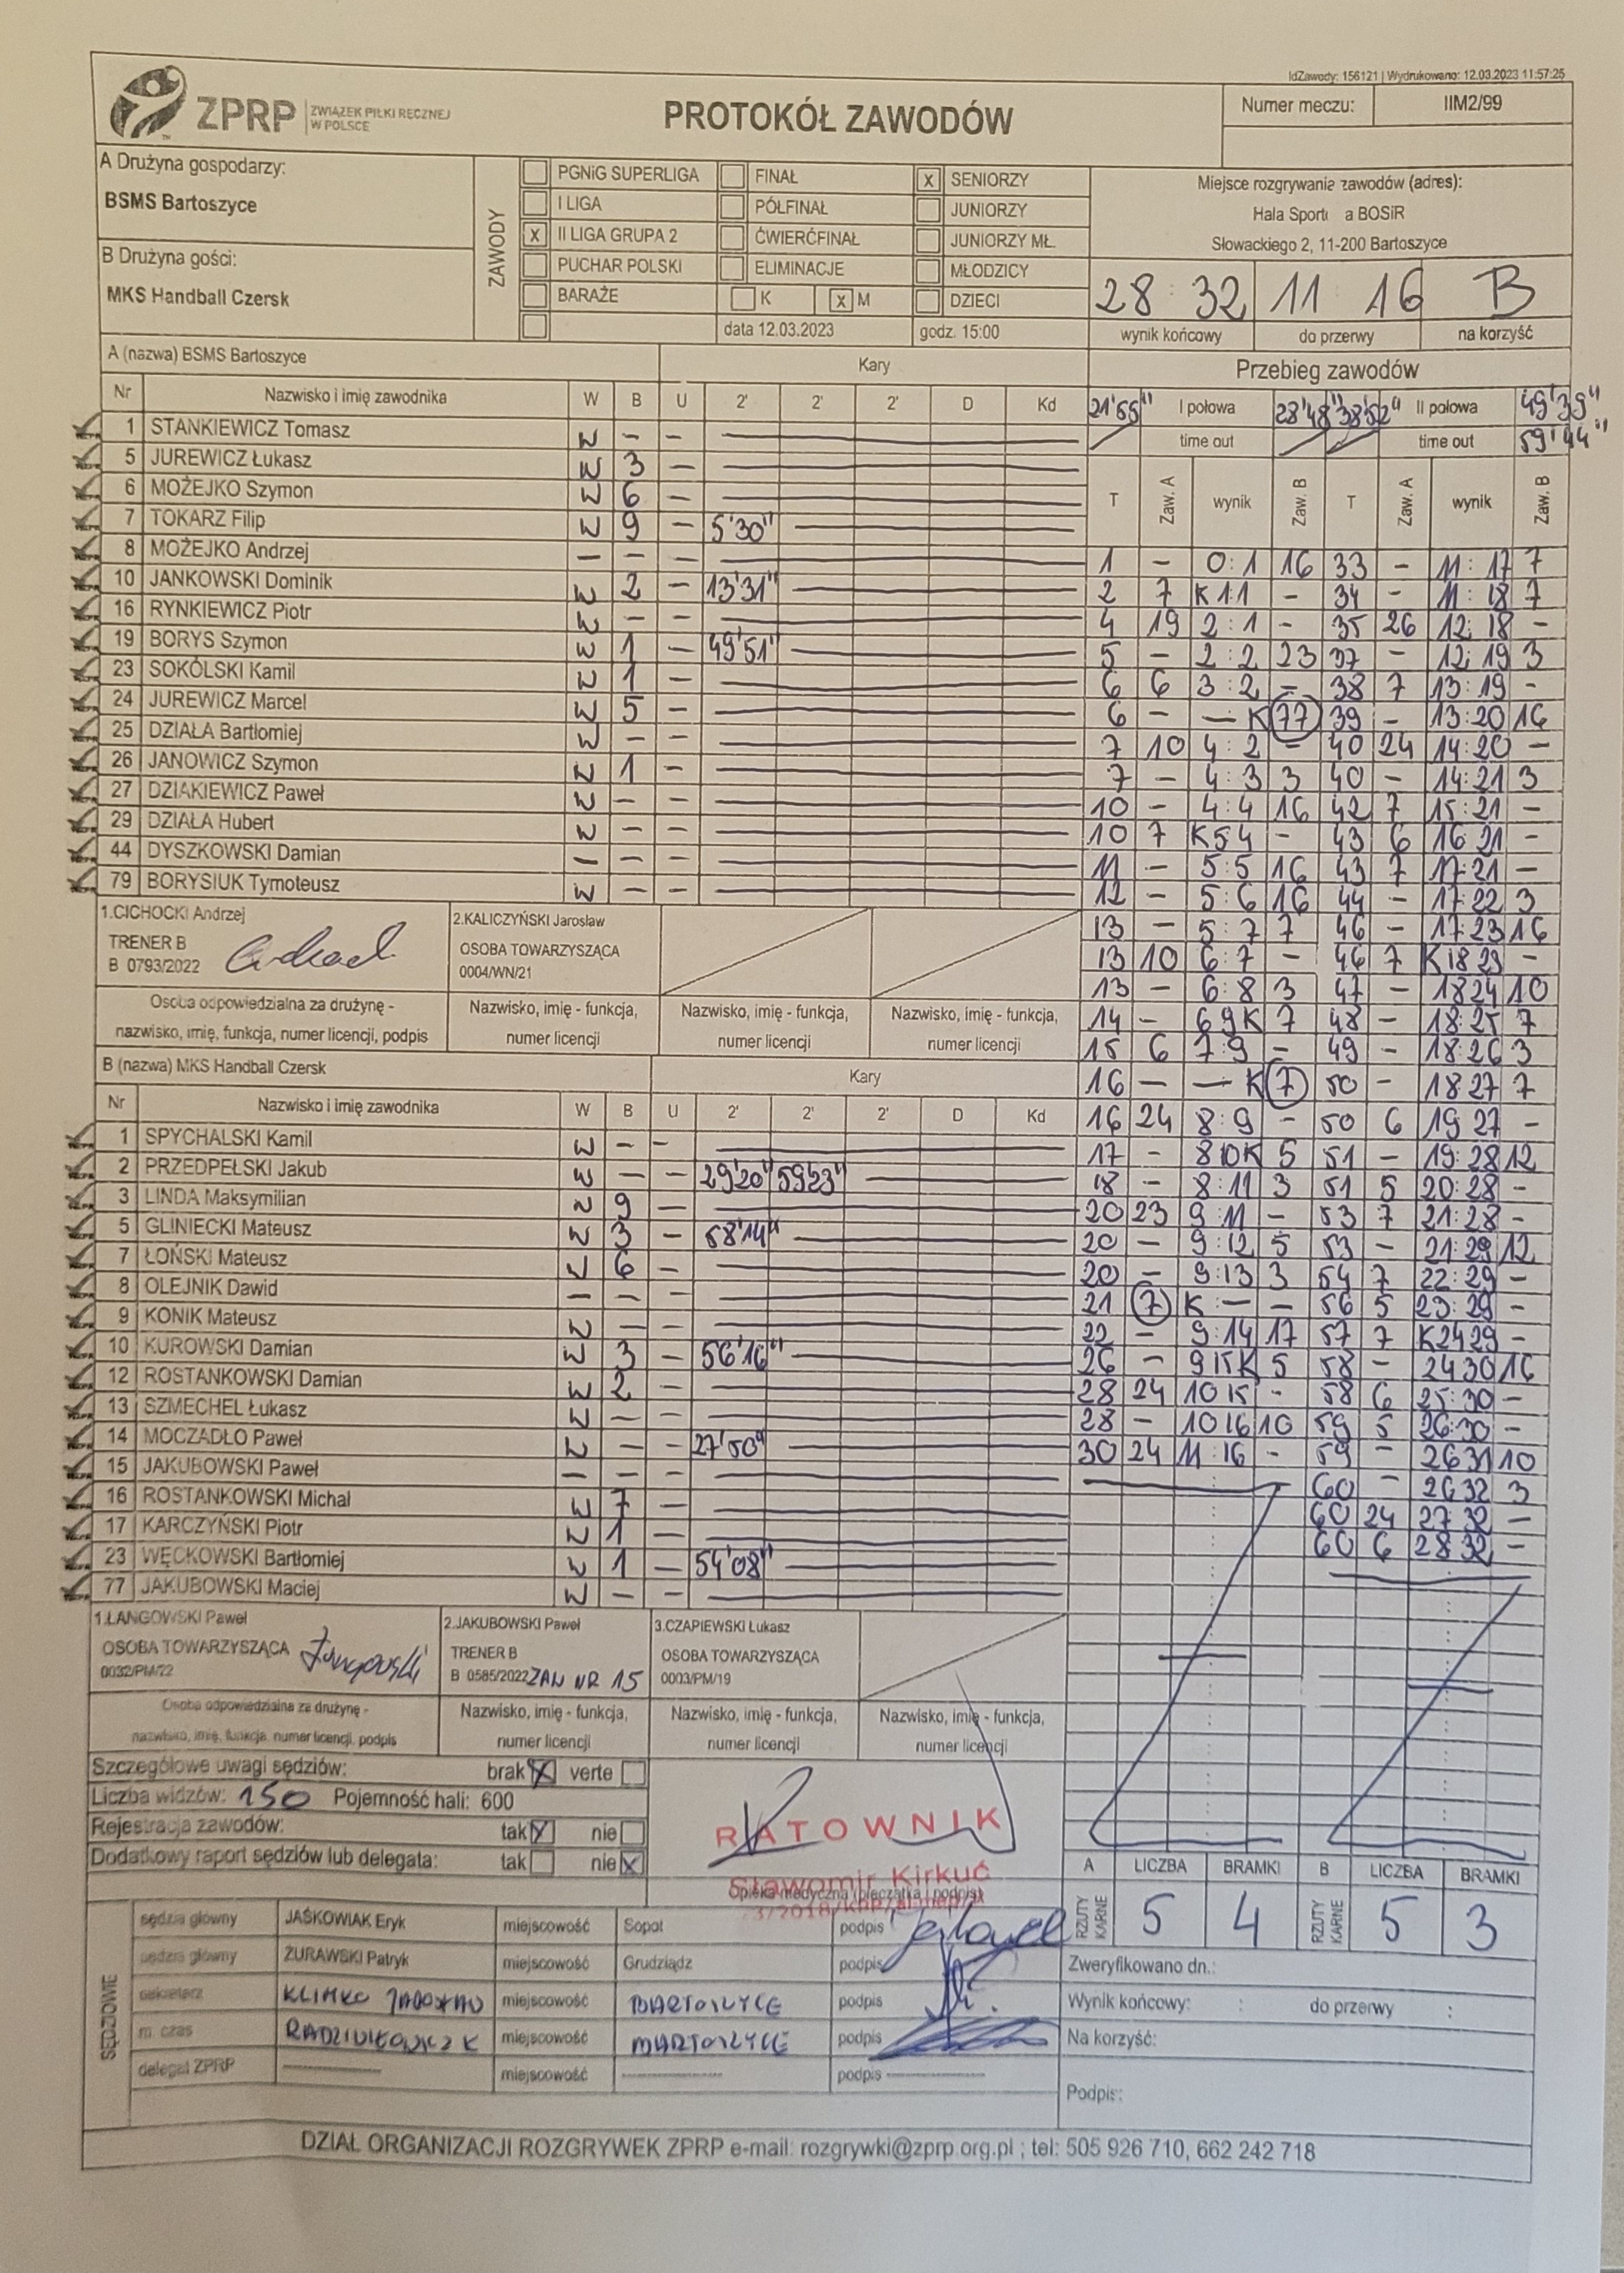 IdZawody: 156121 | Wydrukowano: 12.03.2023 11:57:25
ZPRP ZWIĄZEK PIŁKI RĘCZNEJ W POLSCE
PROTOKÓŁ ZAWODÓW
Numer meczu: IIM2/99
A Drużyna gospodarzy:
BSMS Bartoszyce
B Drużyna gości:
MKS Handball Czersk
ZAWODY
PGNiG SUPERLIGA FINAŁ X SENIORZY
I LIGA PÓŁFINAŁ JUNIORZY
X II LIGA GRUPA 2 ĆWIERĆFINAŁ JUNIORZY MŁ.
PUCHAR POLSKI ELIMINACJE MŁODZICY
BARAŻE K X M DZIECI
data 12.03.2023 godz. 15:00
Miejsce rozgrywania zawodów (adres):
Hala Sport a BOSiR
Słowackiego 2, 11-200 Bartoszyce
28 : 32 11 : 16 B
wynik końcowy do przerwy na korzyść
A (nazwa) BSMS Bartoszyce Kary
Nr Nazwisko i imię zawodnika W B U 2' 2' 2' D Kd
1 STANKIEWICZ Tomasz W – –
5 JUREWICZ Łukasz W 3 –
6 MOŻEJKO Szymon W 6 –
7 TOKARZ Filip W 9 – 5'30"
8 MOŻEJKO Andrzej – – –
10 JANKOWSKI Dominik W 2 – 13'31"
16 RYNKIEWICZ Piotr W – –
19 BORYS Szymon W 1 – 49'51"
23 SOKÓLSKI Kamil W 1 –
24 JUREWICZ Marcel W 5 –
25 DZIAŁA Bartłomiej W – –
26 JANOWICZ Szymon W 1 –
27 DZIAKIEWICZ Paweł W – –
29 DZIAŁA Hubert W – –
44 DYSZKOWSKI Damian – – –
79 BORYSIUK Tymoteusz W – –
1.CICHOCKI Andrzej
TRENER B
B 0793/2022
2.KALICZYŃSKI Jarosław
OSOBA TOWARZYSZĄCA
0004/WN/21
Osoba odpowiedzialna za drużynę - nazwisko, imię, funkcja, numer licencji, podpis
Nazwisko, imię - funkcja, numer licencji
Nazwisko, imię - funkcja, numer licencji
Nazwisko, imię - funkcja, numer licencji
B (nazwa) MKS Handball Czersk Kary
Nr Nazwisko i imię zawodnika W B U 2' 2' 2' D Kd
1 SPYCHALSKI Kamil W – –
2 PRZEDPEŁSKI Jakub W – – 29'20" 59'23"
3 LINDA Maksymilian W 9 –
5 GLINIECKI Mateusz W 3 – 58'14"
7 ŁOŃSKI Mateusz W 6 –
8 OLEJNIK Dawid – – –
9 KONIK Mateusz W – –
10 KUROWSKI Damian W 3 – 56'16"
12 ROSTANKOWSKI Damian W 2 –
13 SZMECHEL Łukasz W – –
14 MOCZADŁO Paweł W – – 27'50"
15 JAKUBOWSKI Paweł – – –
16 ROSTANKOWSKI Michał W 7 –
17 KARCZYŃSKI Piotr W 1 –
23 WĘCKOWSKI Bartłomiej W 1 – 54'08"
77 JAKUBOWSKI Maciej W – –
1.ŁANGOWSKI Paweł
OSOBA TOWARZYSZĄCA
0032/PM/22
2.JAKUBOWSKI Paweł
TRENER B
B 0585/2022 ZAW NR 15
3.CZAPIEWSKI Łukasz
OSOBA TOWARZYSZĄCA
0003/PM/19
Osoba odpowiedzialna za drużynę - nazwisko, imię, funkcja, numer licencji, podpis
Nazwisko, imię - funkcja, numer licencji
Nazwisko, imię - funkcja, numer licencji
Nazwisko, imię - funkcja, numer licencji
Przebieg zawodów
21'55" I połowa 28'48" 38'52" II połowa 49'39"
time out time out 59'44"
T Zaw. A wynik Zaw. B T Zaw. A wynik Zaw. B
1 – 0:1 16 33 – 11:17 7
2 7 K 1:1 – 34 – 11:18 7
4 19 2:1 – 35 26 12:18 –
5 – 2:2 23 37 – 12:19 3
6 6 3:2 – 38 7 13:19 –
6 – – K 77 39 – 13:20 16
7 10 4:2 – 40 24 14:20 –
7 – 4:3 3 40 – 14:21 3
10 – 4:4 16 42 7 15:21 –
10 7 K 5:4 – 43 6 16:21 –
11 – 5:5 16 43 7 17:21 –
12 – 5:6 16 44 – 17:22 3
13 – 5:7 7 46 – 17:23 16
13 10 6:7 – 46 7 K 18:23 –
13 – 6:8 3 47 – 18:24 10
14 – 6:9 K 7 48 – 18:25 7
15 6 7:9 – 49 – 18:26 3
16 – – K 7 50 – 18:27 7
16 24 8:9 – 50 6 19:27 –
17 – 8:10 K 5 51 – 19:28 12
18 – 8:11 3 51 5 20:28 –
20 23 9:11 – 53 7 21:28 –
20 – 9:12 5 53 – 21:29 12
20 – 9:13 3 54 7 22:29 –
21 7 K – – 56 5 23:29 –
22 – 9:14 17 57 7 K 24:29 –
26 – 9:15 K 5 58 – 24:30 16
28 24 10:15 – 58 6 25:30 –
28 – 10:16 10 59 5 26:30 –
30 24 11:16 – 59 – 26:31 10
60 – 26:32 3
60 24 27:32 –
60 6 28:32 –
Szczegółowe uwagi sędziów: brak X verte
Liczba widzów: 150 Pojemność hali: 600
Rejestracja zawodów: tak X nie
Dodatkowy raport sędziów lub delegata: tak nie X
RATOWNIK
Sławomir Kirkuć
Opieka medyczna (pieczątka i podpis)
A LICZBA BRAMKI B LICZBA BRAMKI
RZUTY KARNE 5 4 RZUTY KARNE 5 3
SĘDZIOWIE
sędzia główny JAŚKOWIAK Eryk miejscowość Sopot podpis
sędzia główny ŻURAWSKI Patryk miejscowość Grudziądz podpis
sekretarz KLIMKO miejscowość BARTOSZYCE podpis
m. czas miejscowość BARTOSZYCE podpis
delegat ZPRP miejscowość podpis
Zweryfikowano dn.:
Wynik końcowy: : do przerwy :
Na korzyść:
Podpis:
DZIAŁ ORGANIZACJI ROZGRYWEK ZPRP e-mail: rozgrywki@zprp.org.pl ; tel: 505 926 710, 662 242 718